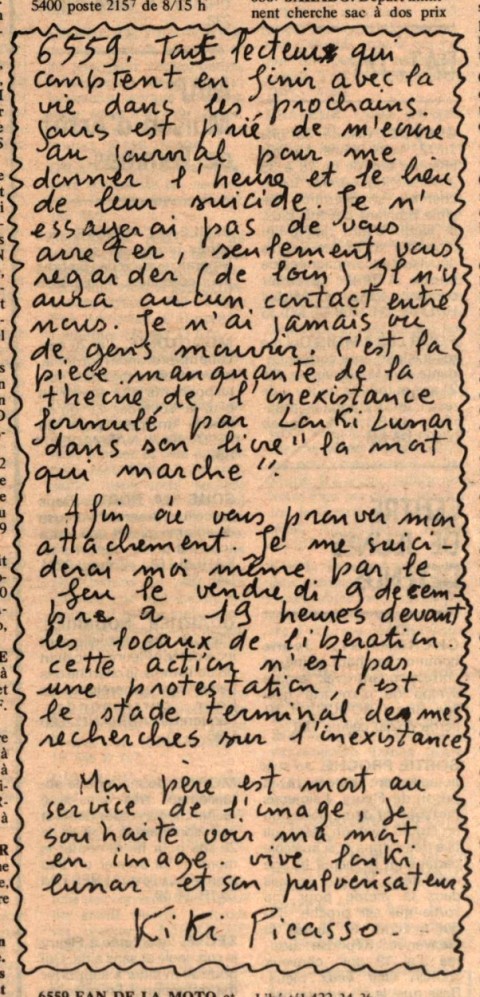 5400 poste 2157 de 8/15 h
nent cherche sac à dos prix
6559. Tout lecteurs qui
comptent en finir avec la
vie dans les prochains.
jours est prié de m'ecrire
au journal pour me
donner l'heure et le lieu
de leur suicide. Je n'
essayerai pas de vous
arreter, seulement vous
regarder (de loin) Il n'y
aura aucun contact entre
nous. Je n'ai jamais vu
de gens mourir. C'est la
piece manquante de la
theorie de l'inexistance
formulé par Louki Lunar
dans son livre "la mort
qui marche".
Afin de vous prouver mon
attachement. Je me suici-
derai moi même par le
feu le vendredi 9 decem-
bre a 19 heures devant
les locaux de liberation.
cette action n'est pas
une protestation, c'est
le stade terminal de mes
recherches sur l'inexistance
Mon père est mort au
service de l'image, je
souhaite voir ma mort
en image. vive louki
lunar et son pulverisateur
Kiki Picasso.
6559 FAN DE LA MOTO et